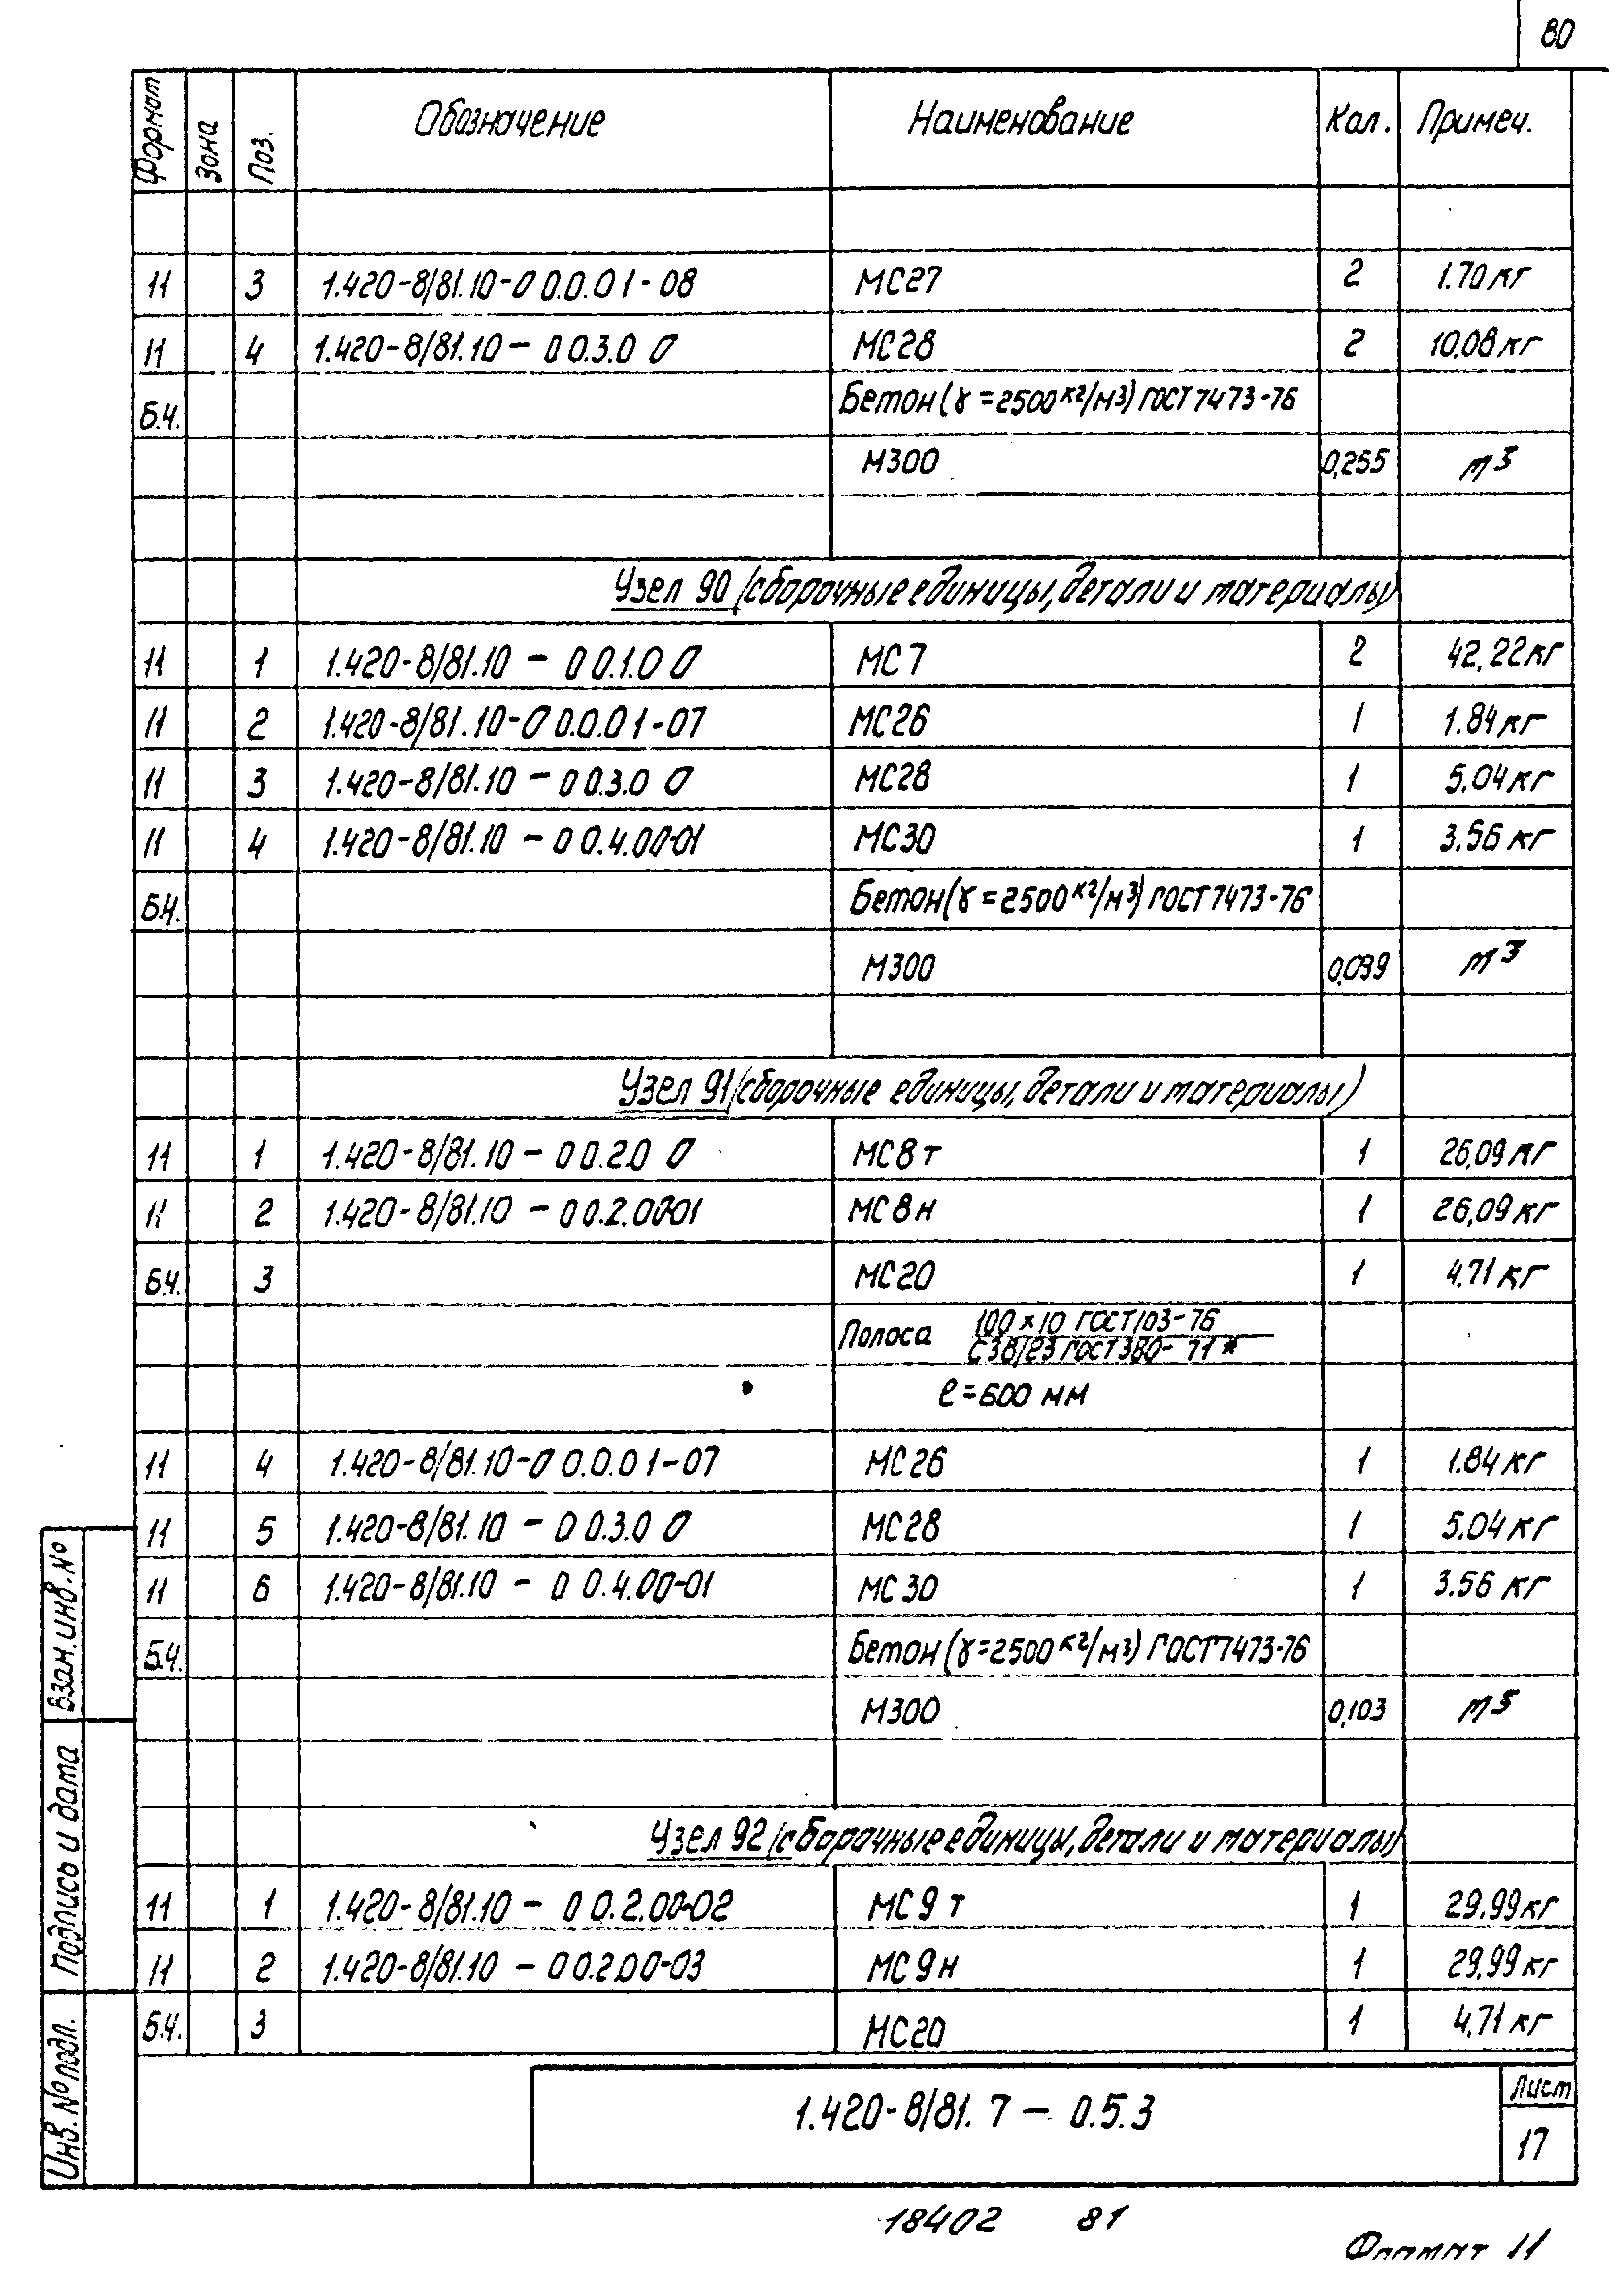 80
Формат Зона Поз. Обозначение Наименование Кол. Примеч.
11 3 1.420-8/81.10-0 0.0.01-08 МС27 2 1.70 кг
11 4 1.420-8/81.10-0 0.3.0 0 МС28 2 10,08 кг
Б.Ч. Бетон (γ=2500 кг/м3) ГОСТ 7473-76
М300 0,255 м3
Узел 90 (сборочные единицы, детали и материалы)
11 1 1.420-8/81.10-0 0.1.0 0 МС7 2 42,22 кг
11 2 1.420-8/81.10-0 0.0.01-07 МС26 1 1.84 кг
11 3 1.420-8/81.10-0 0.3.0 0 МС28 1 5,04 кг
11 4 1.420-8/81.10-0 0.4.00-01 МС30 1 3.56 кг
Б.Ч. Бетон (γ=2500 кг/м3) ГОСТ 7473-76
М300 0,099 м3
Узел 91 (сборочные единицы, детали и материалы)
11 1 1.420-8/81.10-0 0.2.0 0 МС8т 1 26,09 кг
11 2 1.420-8/81.10-0 0.2.00-01 МС8н 1 26,09 кг
Б.Ч. 3 МС20 1 4,71 кг
Полоса 100×10 ГОСТ 103-76
С38/23 ГОСТ 380-71*
ℓ=600 мм
11 4 1.420-8/81.10-0 0.0.01-07 МС26 1 1.84 кг
11 5 1.420-8/81.10-0 0.3.0 0 МС28 1 5.04 кг
11 6 1.420-8/81.10-0 0.4.00-01 МС30 1 3.56 кг
Б.Ч. Бетон (γ=2500 кг/м3) ГОСТ 7473-76
М300 0,103 м3
Узел 92 (сборочные единицы, детали и материалы)
11 1 1.420-8/81.10-0 0.2.00-02 МС9т 1 29.99 кг
11 2 1.420-8/81.10-0 0.2.00-03 МС9н 1 29,99 кг
Б.Ч. 3 МС20 1 4,71 кг
Взам.инв.№
Подпись и дата
Инв.№подл.
1.420-8/81.7-0.5.3
Лист
17
18402 81
Формат 11